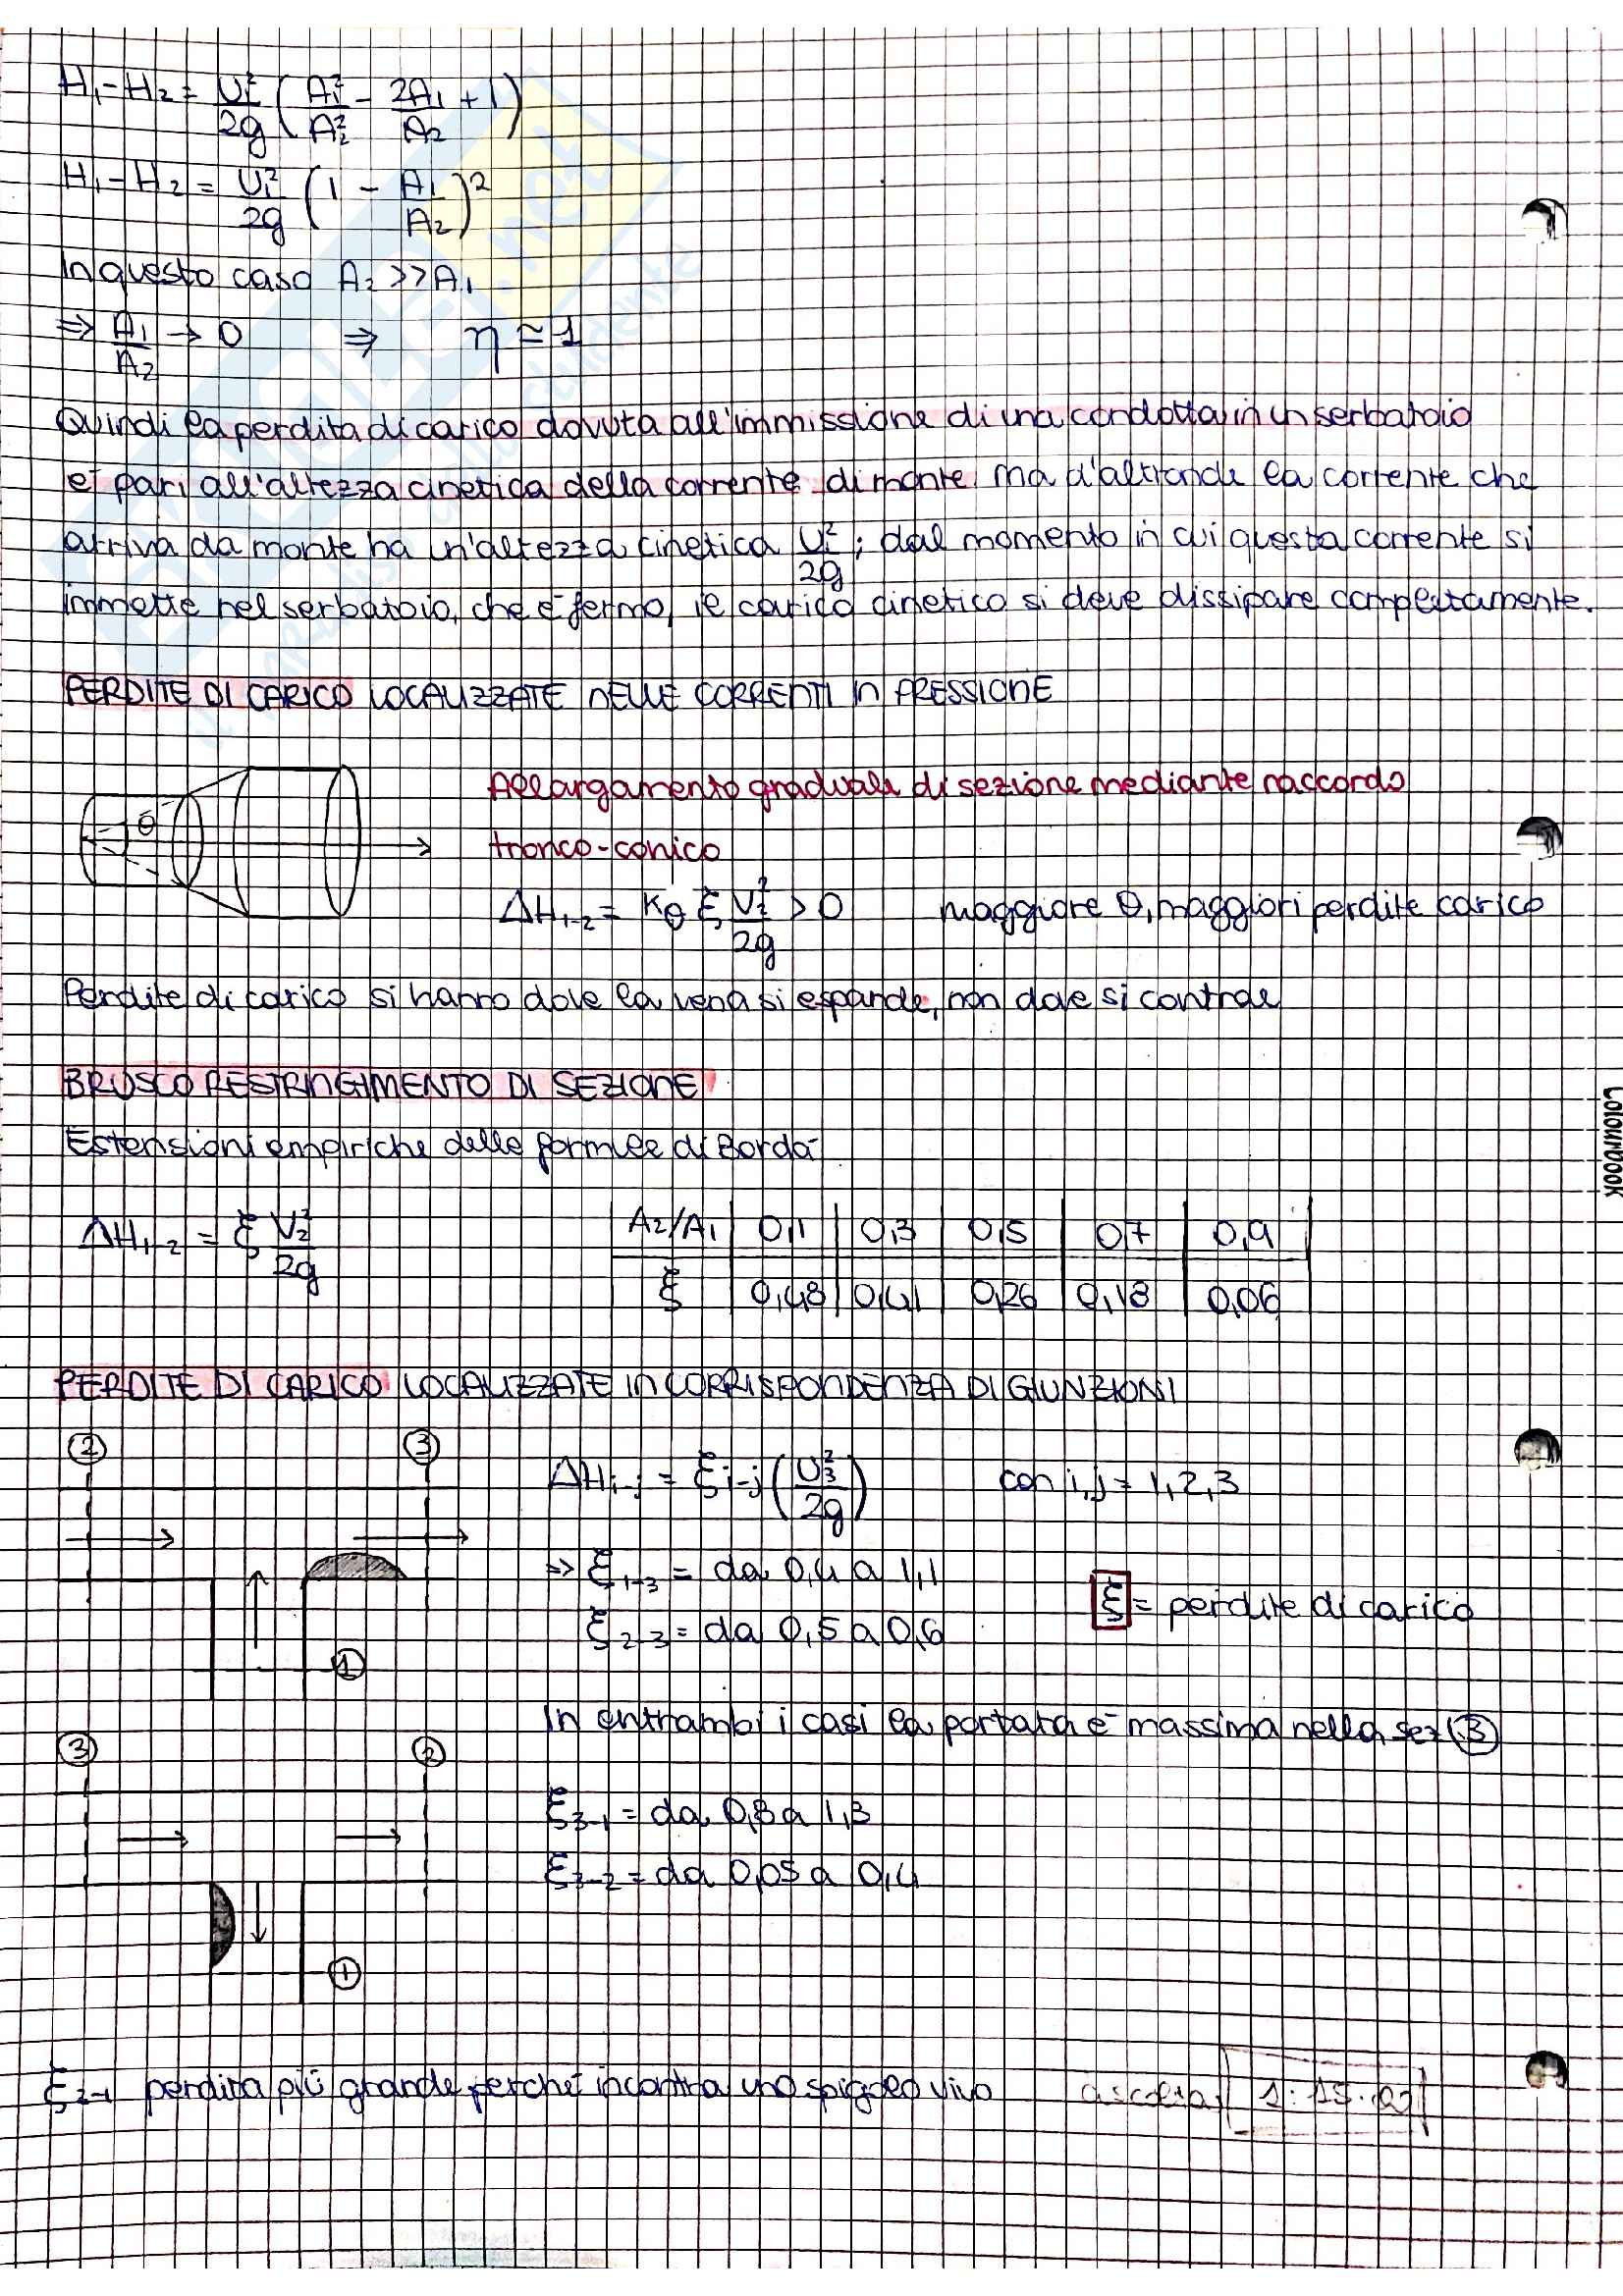 H₁-H₂ = U₁²/2g (A₁²/A₂² - 2A₁/A₂ + 1)
H₁-H₂ = U₁²/2g (1 - A₁/A₂)²
In questo caso A₂ >> A₁
⇒ A₁/A₂ → 0 ⇒ η ≃ 1
Quindi la perdita di carico dovuta all'immissione di una condotta in un serbatoio
è pari all'altezza cinetica della corrente di monte. Ma d'altronde la corrente che
arriva da monte ha un'altezza cinetica U₁²/2g; dal momento in cui questa corrente si
immette nel serbatoio, che è fermo, il carico cinetico si deve dissipare completamente.
PERDITE DI CARICO LOCALIZZATE NELLE CORRENTI IN PRESSIONE
θ
Allargamento graduale di sezione mediante raccordo
tronco-conico
ΔH₁₋₂ = Kθ ξ V₂²/2g > 0 maggiore θ, maggiori perdite carico
Perdite di carico si hanno dove la vena si espande, non dove si contrae
BRUSCO RESTRINGIMENTO DI SEZIONE
Estensioni empiriche delle formule di Borda
ΔH₁₋₂ = ξ V₂²/2g
A₂/A₁ 0,1 0,3 0,5 0,7 0,9
ξ 0,48 0,41 0,26 0,18 0,06
COLOURBOOK
PERDITE DI CARICO LOCALIZZATE IN CORRISPONDENZA DI GIUNZIONI
2 3
ΔHi-j = ξi-j (U₃²/2g) con i,j = 1,2,3
⇒ ξ₁₋₃ = da 0,4 a 1,1
ξ = perdite di carico
ξ₂₋₃ = da 0,5 a 0,6
1
In entrambi i casi la portata è massima nella sez 3
3 2
ξ₃₋₁ = da 0,8 a 1,3
ξ₃₋₂ = da 0,05 a 0,4
1
perdita più grande perché incontra uno spigolo vivo ascolta